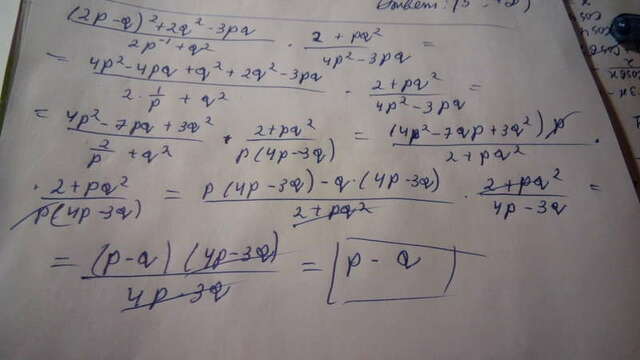 Ответ: (
(2p-q)²+2q²-3pq / 2p⁻¹+q² · 2+pq² / 4p²-3pq =
= 4p²-4pq+q²+2q²-3pq / 2·1/p+q² · 2+pq² / 4p²-3pq =
= 4p²-7pq+3q² / 2/p+q² · 2+pq² / p(4p-3q) = (4p²-7qp+3q²)p / 2+pq² ·
· 2+pq² / p(4p-3q) = p(4p-3q)-q·(4p-3q) / 2+pq² · 2+pq² / 4p-3q =
= (p-q)(4p-3q) / 4p-3q = p-q